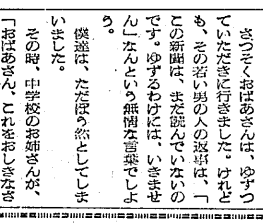 さつそくおばあさんは、ゆずつ
ていただきに行きました。けれど
も、その若い男の人の返事は、「
この新聞は、まだ読んでいないの
です。ゆずるわけには、いきませ
ん」なんという無情な言葉でしよ
う。
僕達は、ただぼう然としてしま
いました。
その時、中学校のお姉さんが、
「おばあさん、これをおしきなさ